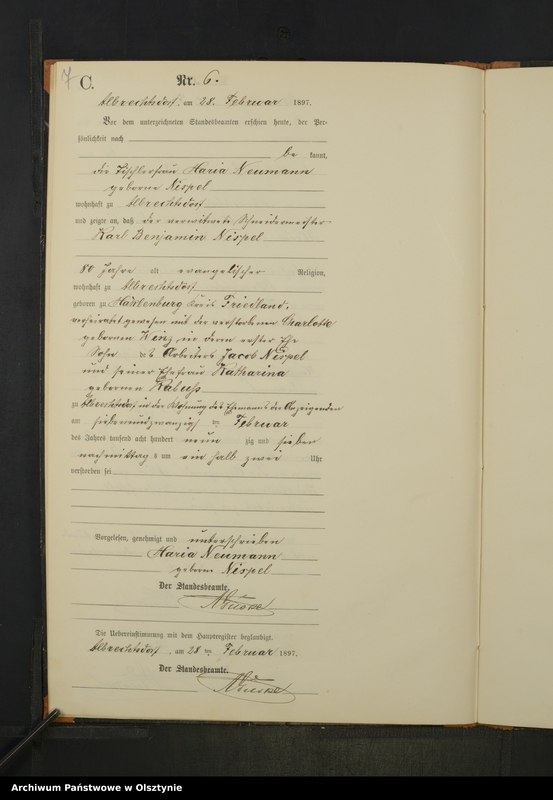 7 C. Nr. 6.
Albrechtsdorf, am 28. Februar 1897.
Vor dem unterzeichneten Standesbeamten erschien heute, der Per-
sönlichkeit nach
be kannt,
die Tischlerfrau Maria Neumann
geborene Nispel
wohnhaft zu Albrechtsdorf
und zeigte an, daß der verwittwete Schneidermeister
Karl Benjamin Nispel
80 Jahre alt evangelischer Religion,
wohnhaft zu Albrechtsdorf
geboren zu Kreis Friedland,
verheiratet gewesen mit der verstorbenen Charlotte
geborenen Hinz, in deren erster Ehe
Sohn des Arbeiters Jacob Nispel
und seiner Ehefrau Katharina
geborenen Kabuss
zu Albrechtsdorf in der Wohnung des Ehemanns der Anzeigenden
am siebenundzwanzigsten Februar
des Jahres tausend acht hundert neun zig und sieben
nachmittag s um ein halb zwei Uhr
verstorben sei
Vorgelesen, genehmigt und unterschrieben
Maria Neumann
geborne Nispel
Der Standesbeamte.
Die Uebereinstimmung mit dem Hauptregister beglaubigt.
Albrechtsdorf, am 28 ten Februar 1897.
Der Standesbeamte.
Archiwum Państwowe w Olsztynie